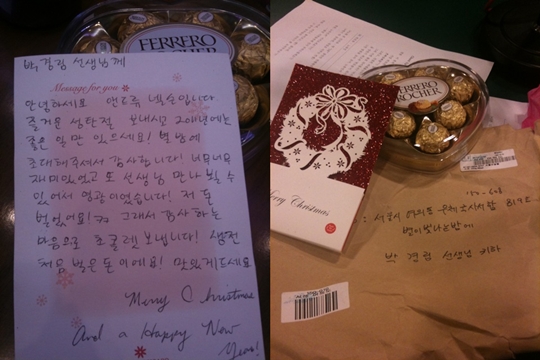 박경림 선생님께
Message for you
안녕하세요 앤드류 넬슨입니다
즐거운 성탄절 보내시고 2011년에는
좋은 일만 있으세요! 별밤에
초대해주셔서 감사합니다! 너무너무
재미있었고 또 선생님 만나뵐 수
있어서 영광이었습니다! 저 돈
벌었어요! ㅋㅋ 그래서 감사하는
마음으로 초콜렛 보냅니다! 생전
처음 벌은 돈이에요! 맛있게드세요
Merry Christmas
And a Happy New
Year!
FERRERO
ROCHER
FERRERO
ROCHER
Merry Christmas
서울시 여의도
별이빛나는밤에
박 경림 선생님 귀하